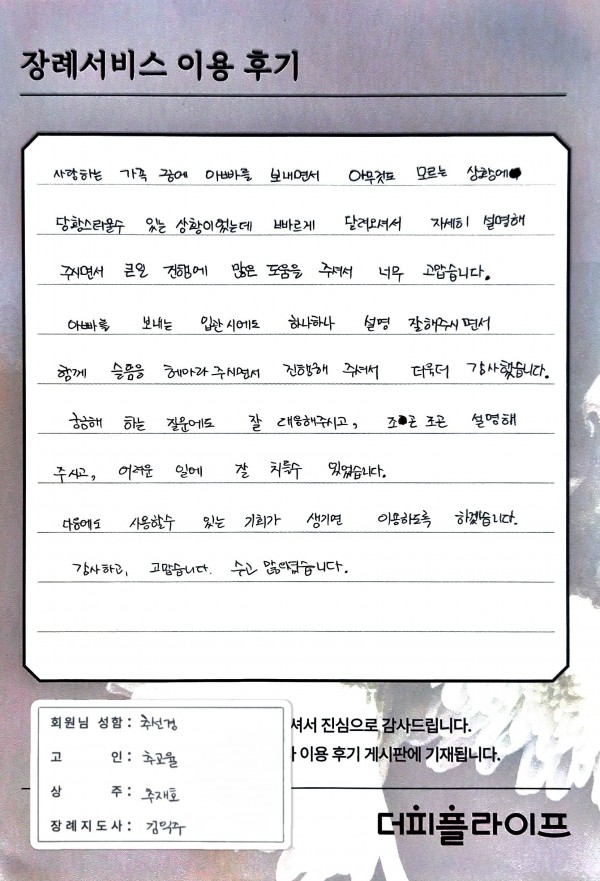 장례서비스 이용 후기
사랑하는 가족 중에 아빠를 보내면서 아무것도 모르는 상황에
당황스러울수 있는 상황이었는데 빠르게 달려오셔서 자세히 설명해
주시면서 큰일 진행에 많은 도움을 주셔서 너무 고맙습니다.
아빠를 보내는 입관시에도 하나하나 설명 잘해주시면서
함께 슬픔을 헤아려 주시면서 진행해 주셔서 더욱더 감사했습니다.
궁금해 하는 질문에도 잘 대응해주시고, 조곤 조곤 설명해
주시고, 어려운 일에 잘 치를수 있었습니다.
다음에도 사용할수 있는 기회가 생기면 이용하도록 하겠습니다.
감사하고, 고맙습니다. 수고 많으셨습니다.
회원님 성함 : 추선경
셔서 진심으로 감사드립니다.
고 인 : 추교율
이용 후기 게시판에 기재됩니다.
상 주 : 추재호
장례지도사 : 김익주
더피플라이프